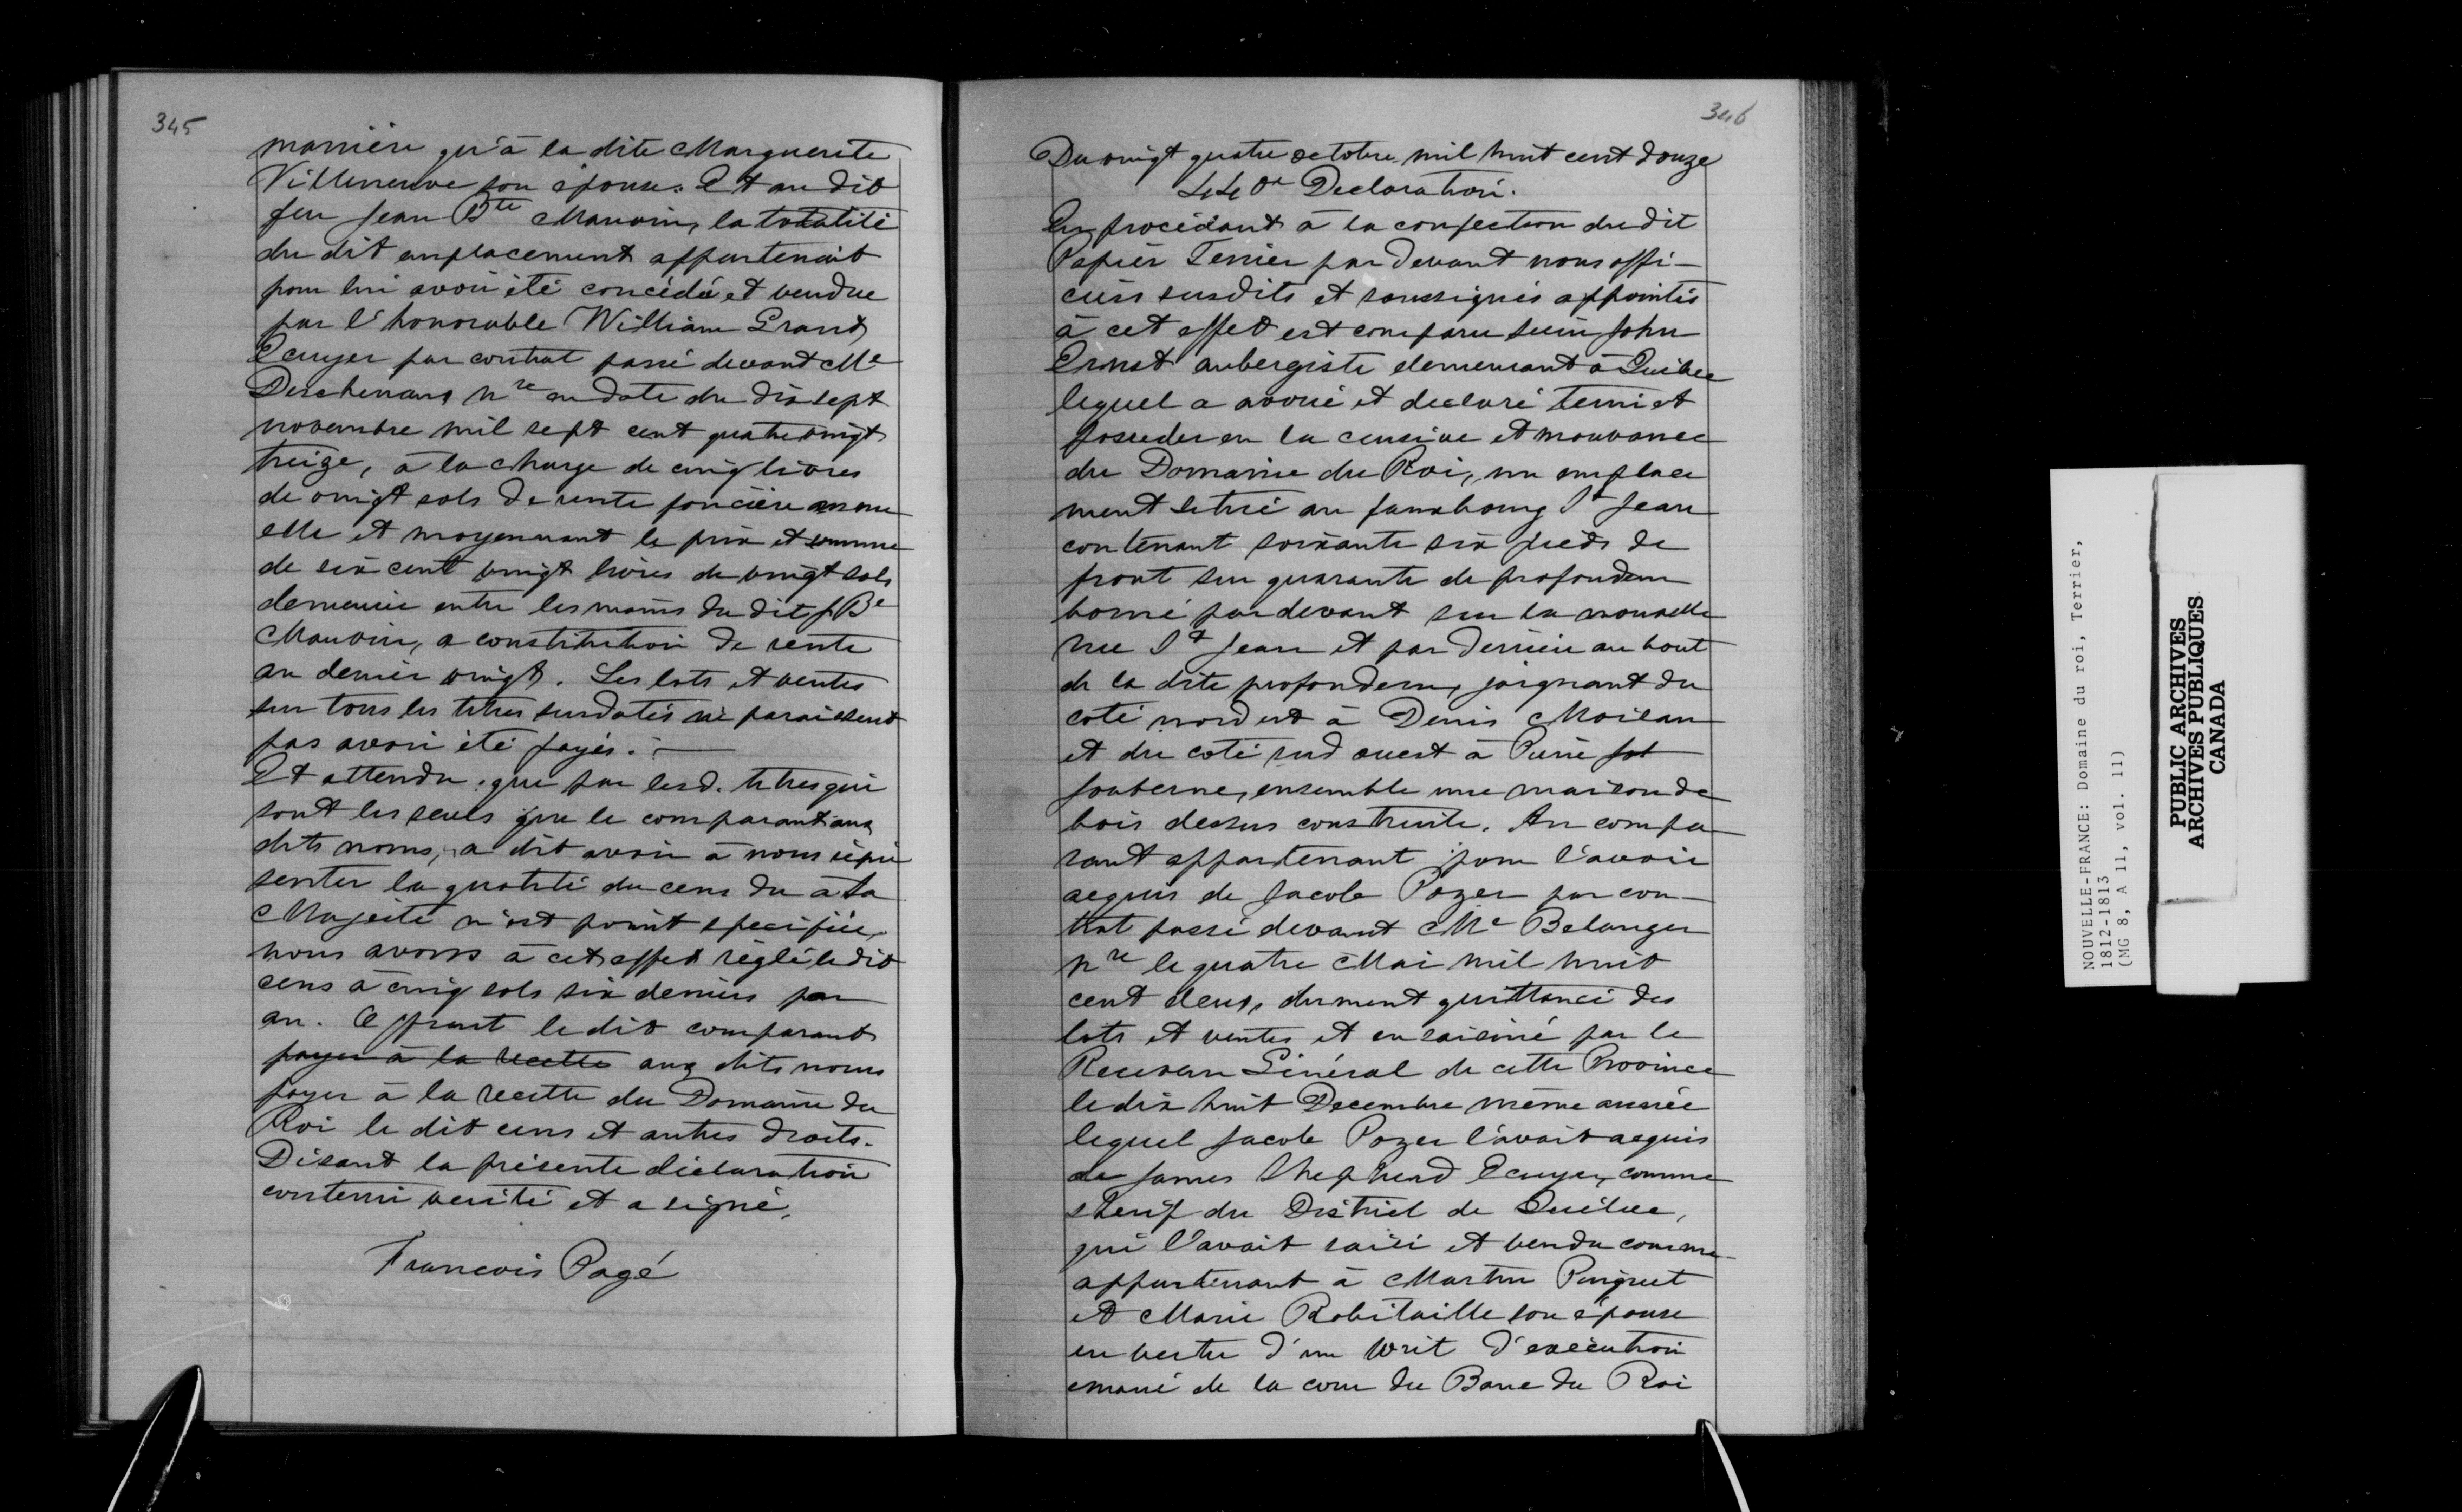 345
manière qu'à la dite Marguerite
Villeneuve son épouse. Et au dit
feu Jean Bte Mauvin, la totalité
du dit emplacement appartenait
pour lui avoir été concédé et vendue
par l'honorable William Grant
Ecuyer par contrat passé devant Me
Deschenaux Nre en date du dix sept
novembre mil sept cent quatrevingt
treize, à la charge de cinq livres
de vingt sols de rente foncière annu
elle et moyennant le prix et somme
de six cent vingt livres de vingt sols
demeurée entre les mains du dit J. Be
Mauvin, a constitution de rente
au denier vingt. Les lots et ventes
sur tous les titres susdatés ne paraissent
pas avoir été payés. —
Et attendu que par lesd. titres qui
sont les seuls que le comparant aux
dits noms, a dit avoir à nous répré
senter la quotité du cens du à Sa
Majesté n'est point specifiée,
nous avons à cet effet réglé le dit
cens à cinq sols six deniers par
an. Offrant le dit comparant
payer à la recette aux dits noms
payer à la recette du Domaine du
Roi le dit cens et autres droits.
Disant la présente déclaration
contenir verité et a signé,
Francois Pagé
346
Du vingt quatre octobre mil huit cent douze
440e Declaration.
En procédant à la confection du dit
Papier Terrier par devant nous offi-
ciers susdits et soussignés appointés
à cet effet est comparu sieur John
Ernst aubergiste demeurant à Québec
lequel a avoué et declaré tenir et
posseder en la censive et mouvance
du Domaine du Roi, un emplace
ment situé au fauxbourg St Jean
contenant soixante six pieds de
front sur quarante de profondeur
borné par devant sur la nouvelle
rue St Jean et par derrière au bout
de la dite profondeur, joignant du
coté nord est à Denis Moisan
et du coté sud ouest à Pierre Jot
Jouberne, ensemble une maison de
bois dessus construite. Au compa
rant appartenant pour l'avoir
acquis de Jacob Pozer par con-
trat passé devant Me Belanger
Nre le quatre Mai mil huit
cent deux, dument quittancé des
lots et ventes et ensaisiné par le
Receveur Général de cette Province
le dix huit Decembre même année
lequel Jacob Pozer l'avait acquis
de James Shepherd Ecuyer, comme
Sherif du District de Québec,
qui l'avait saisi et vendu comme
appartenant à Martin Paquet
et Marie Robitaille son épouse
en vertu d'un Writ d'exécution
emané de la cour du Banc du Roi
NOUVELLE-FRANCE: Domaine du roi, Terrier,
1812-1813
(MG 8, A 11, vol. 11)
PUBLIC ARCHIVES
ARCHIVES PUBLIQUES
CANADA